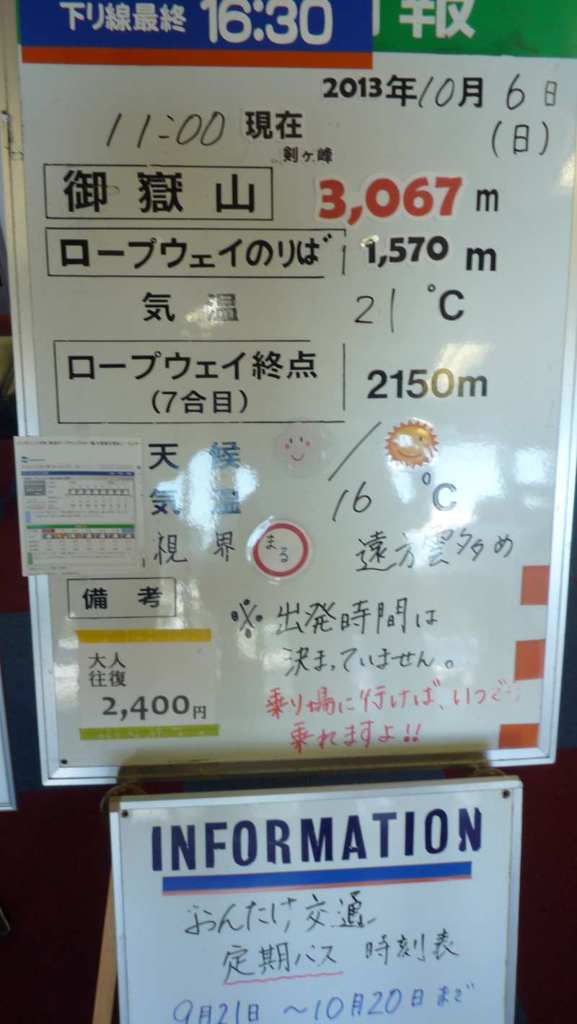 下り線最終 16:30
報
2013年10月6日
(日)
11:00 現在
剣ヶ峰
御嶽山 3,067 m
ロープウェイのりば 1,570 m
気温 21℃
ロープウェイ終点
(7合目)
2150m
天候
気温 16℃
視界 まる 遠方雲多め
備考
※出発時間は
決まっていません。
乗り場に行けば、いつでも
乗れますよ!!
大人
往復
2,400円
INFORMATION
おんたけ交通
定期バス 時刻表
9月21日 〜10月20日まで